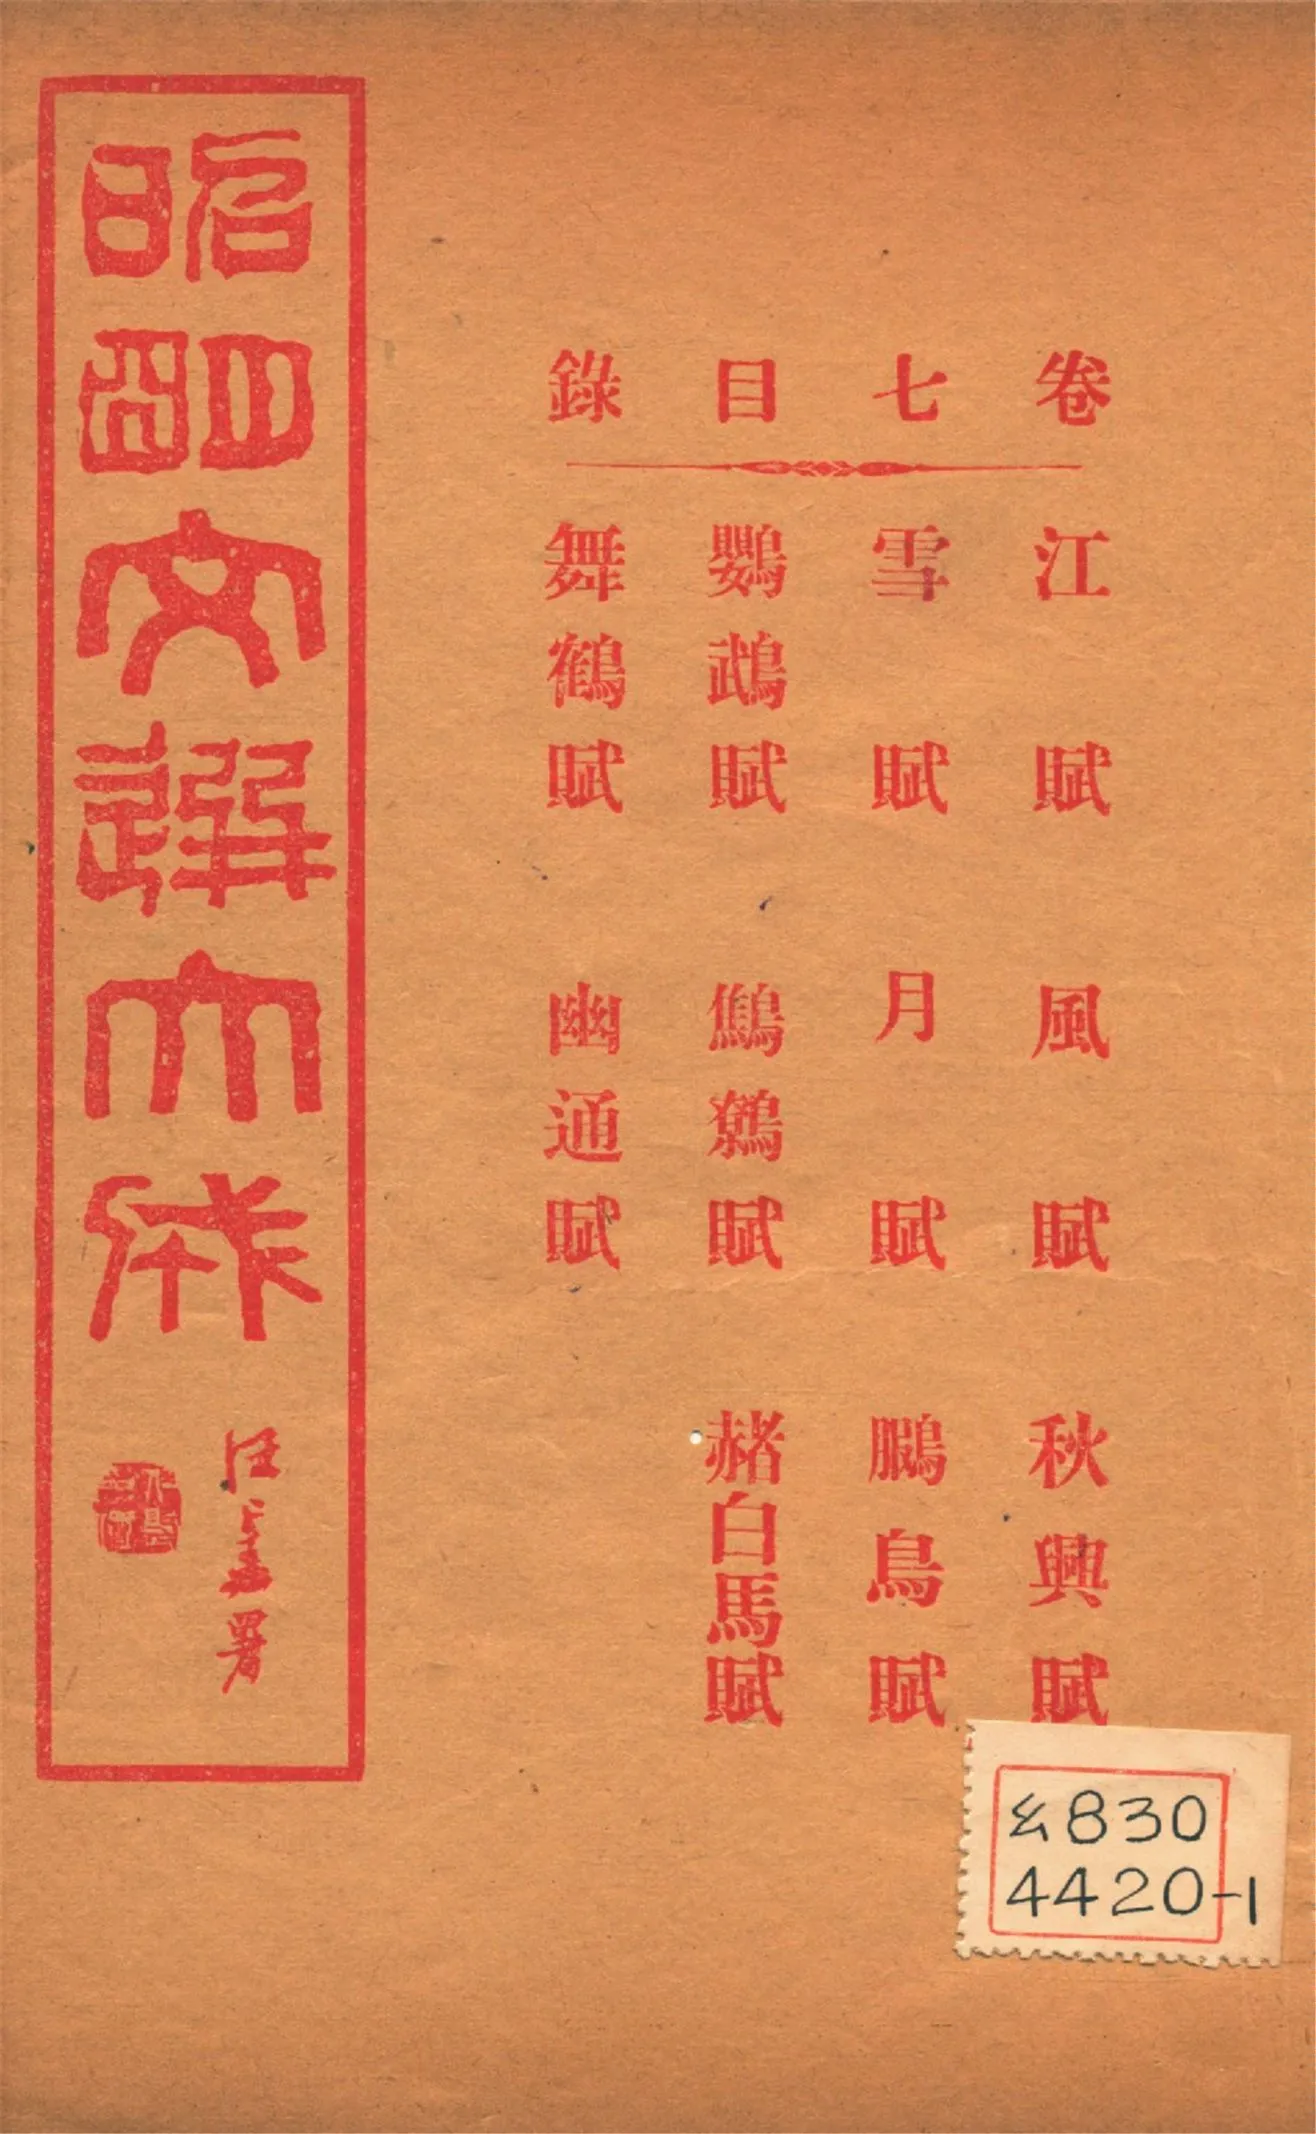 卷七目錄
江賦 風賦 秋興賦
雪賦 月賦 鵩鳥賦
鸚鵡賦 鷦鷯賦 赭白馬賦
舞鶴賦 幽通賦
昭明文選大成
汪 署
830
4420-1